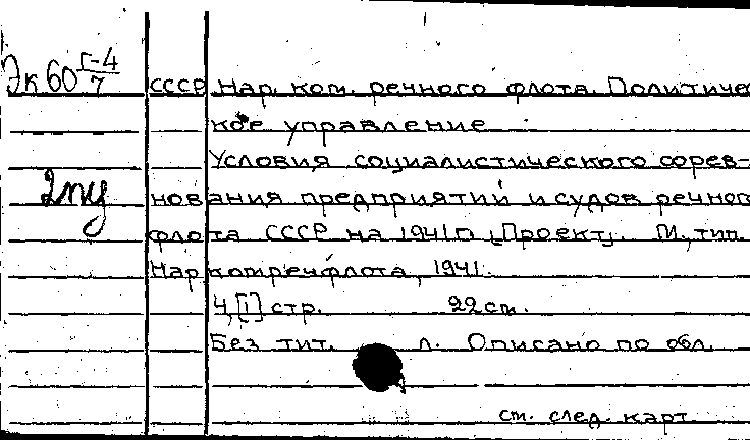 Эк60 Г-4/7 СССР Нар. ком. речного флота. Политичес
кое управление
Условия социалистического сорев-
2пу нования предприятий и судов речног
флота СССР на 1941 г. [Проект]. М., тип.
Наркомречфлота, 1941.
4, [1] стр. 22 см.
Без тит. л. Описано по обл.
см. след. карт